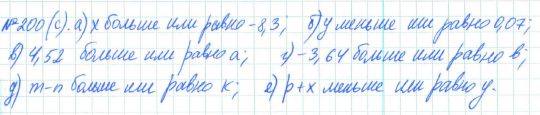 №200(с). а) х больше или равно -8,3; б) у меньше или равно 0,07;
в) 4,52 больше или равно а; г) -3,64 больше или равно в;
д) m-n больше или равно к; е) р+х меньше или равно у.